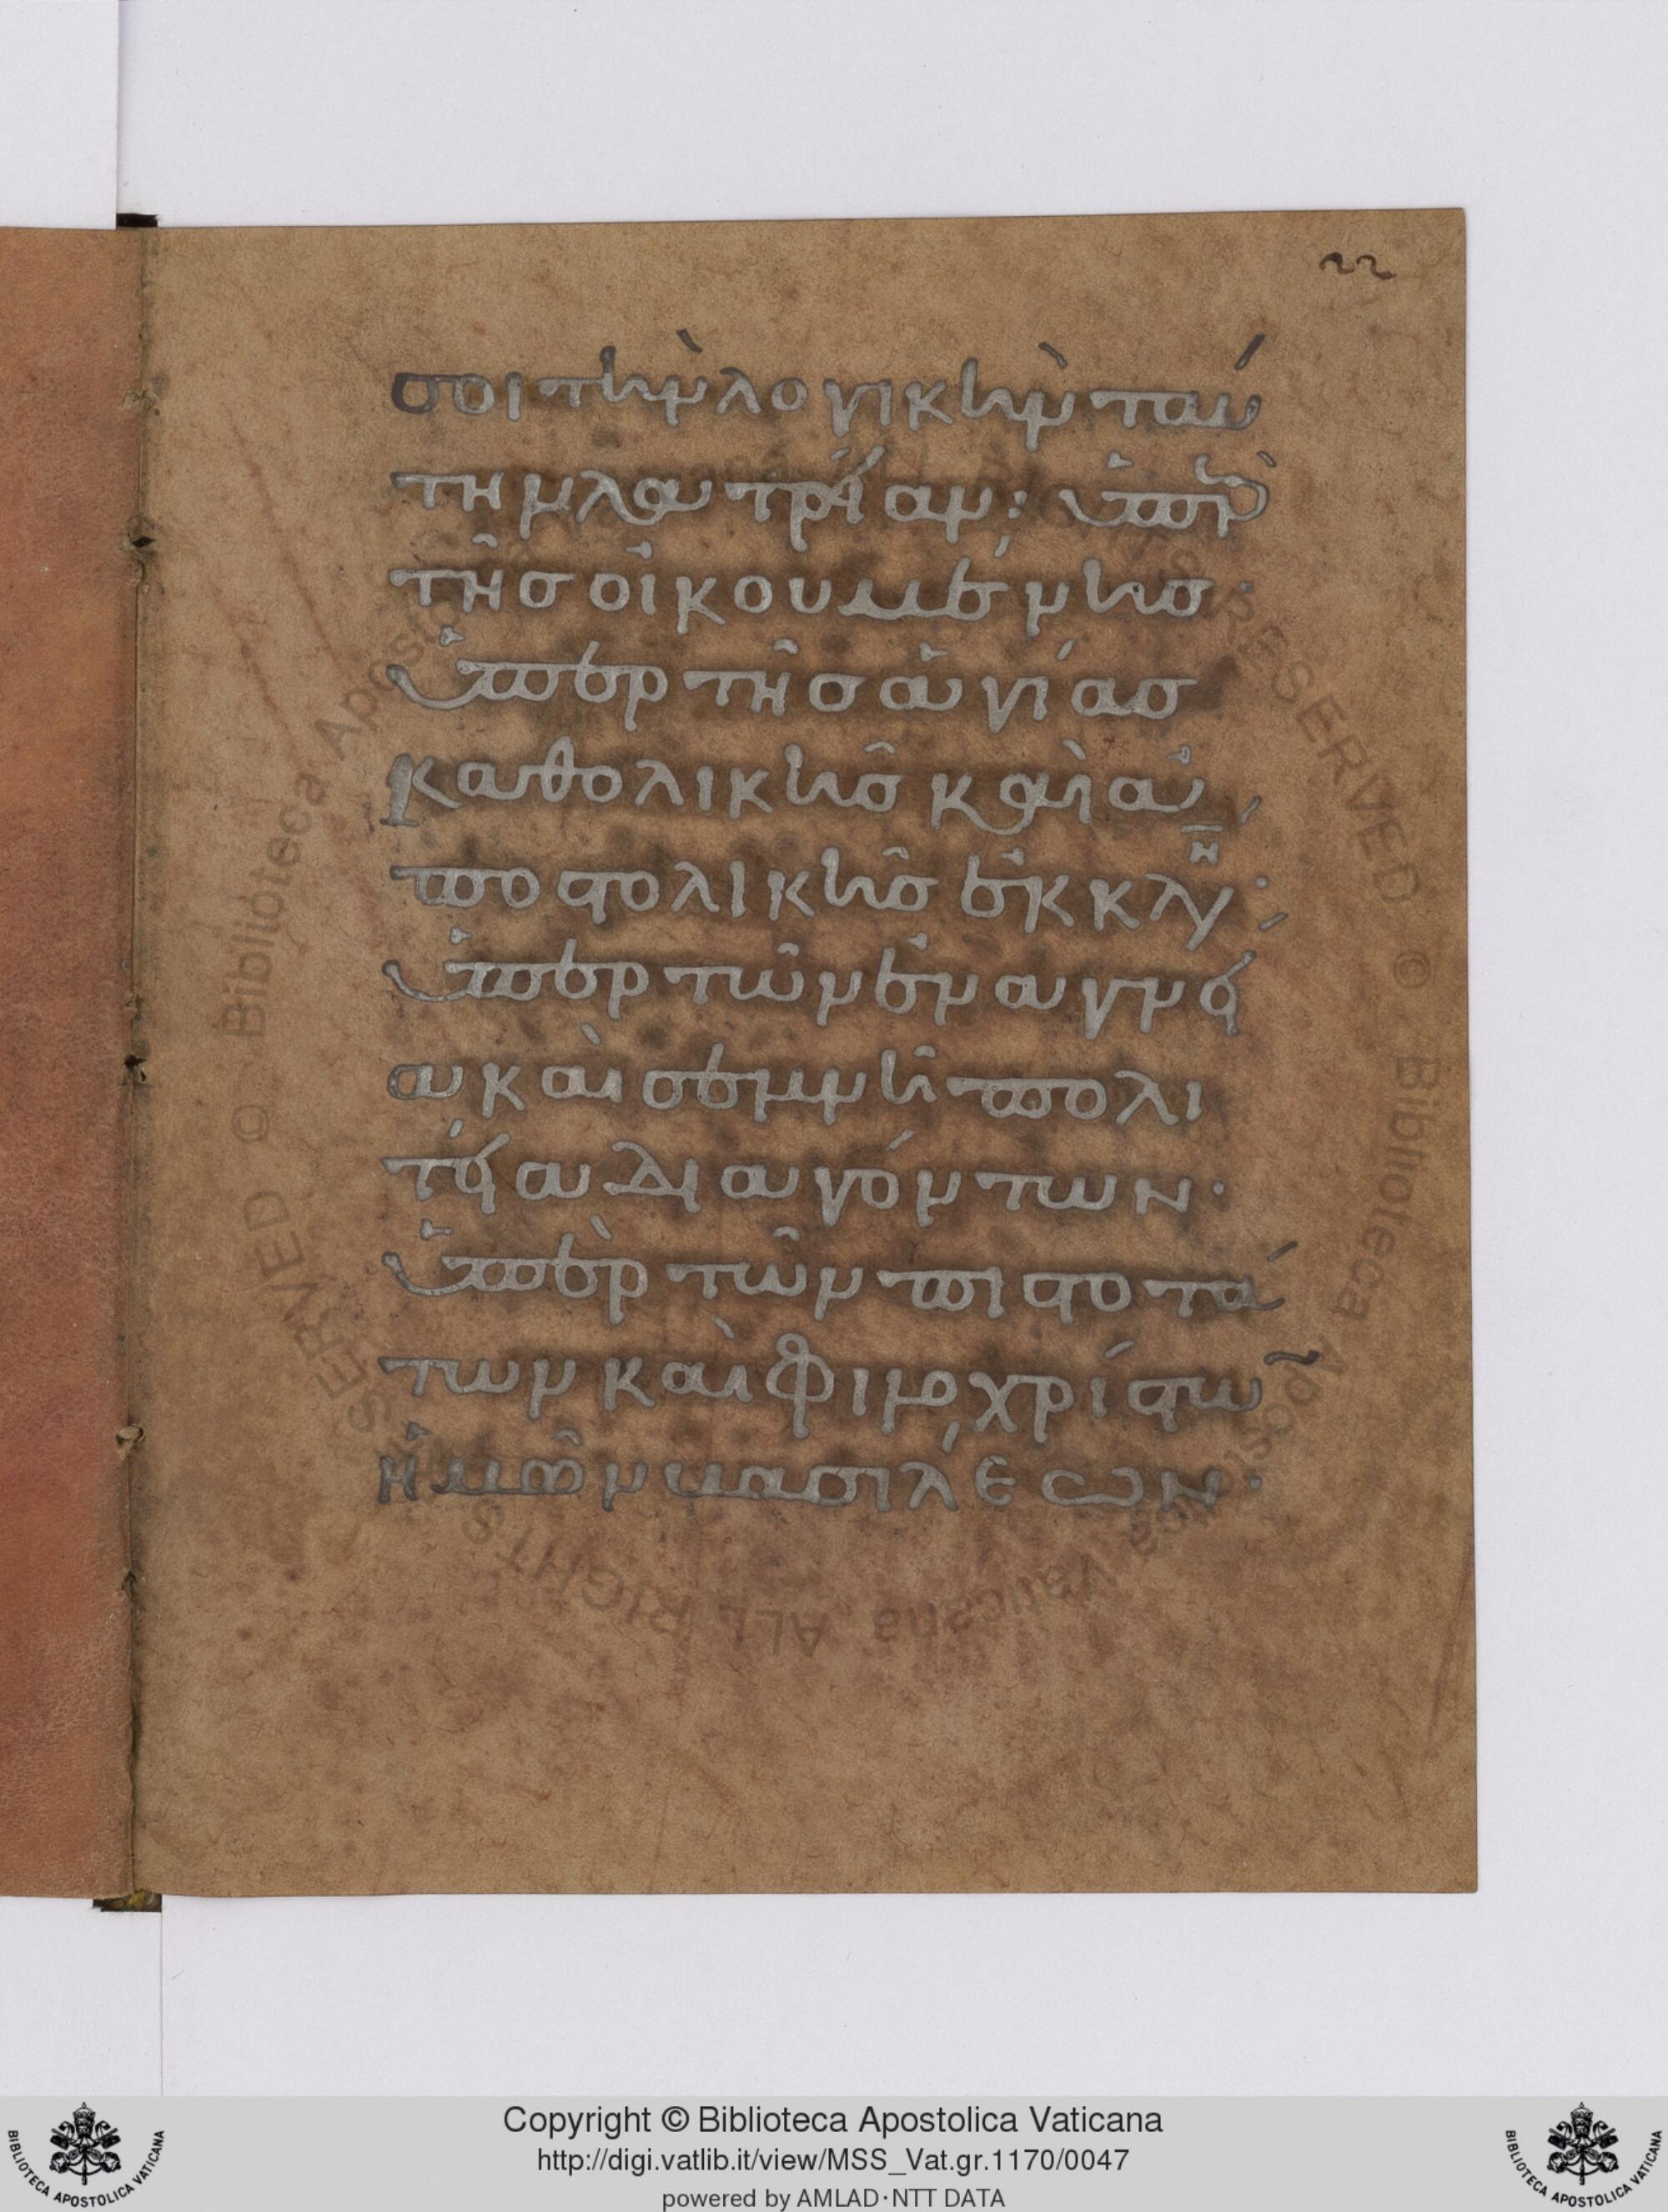 22
σοι τὴν λογικὴν ταύ
την λατρείαν: ὑπὲρ
τῆσ οἰκουμένησ·
ὑπερ τῆσ ἁγίασ
καθολικῆσ καὶ ἀ
ποστολικῆσ ἐκκλη
ὑπερ τῶν ἐν ἁγνεί
α καὶ σεμνῆ πολι
τεία διαγόντων·
ὑπὲρ τῶν πιστοτά
των καὶ φιλοχρίστω
ἡμῶν βασιλέων·
Copyright © Biblioteca Apostolica Vaticana
http://digi.vatlib.it/view/MSS_Vat.gr.1170/0047
powered by AMLAD·NTT DATA
BIBLIOTECA APOSTOLICA VATICANA
BIBLIOTECA APOSTOLICA VATICANA
© Biblioteca Apostolica Vaticana ALL RIGHTS RESERVED